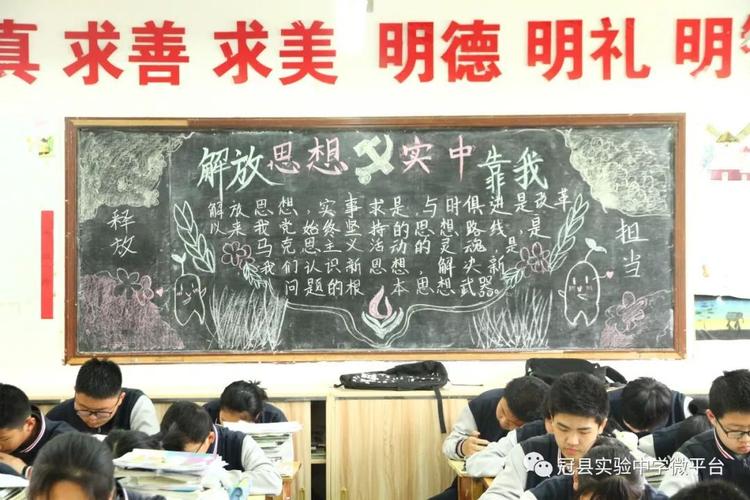 真 求善 求美 明德 明礼 明
解放思想 实中靠我
释放
解放思想,实事求是,与时俱进是改革
以来我党始终坚持的思想路线,是
马克思主义活动的灵魂,是
我们认识新思想,解决新
问题的根本思想武器。
担当
冠县实验中学微平台